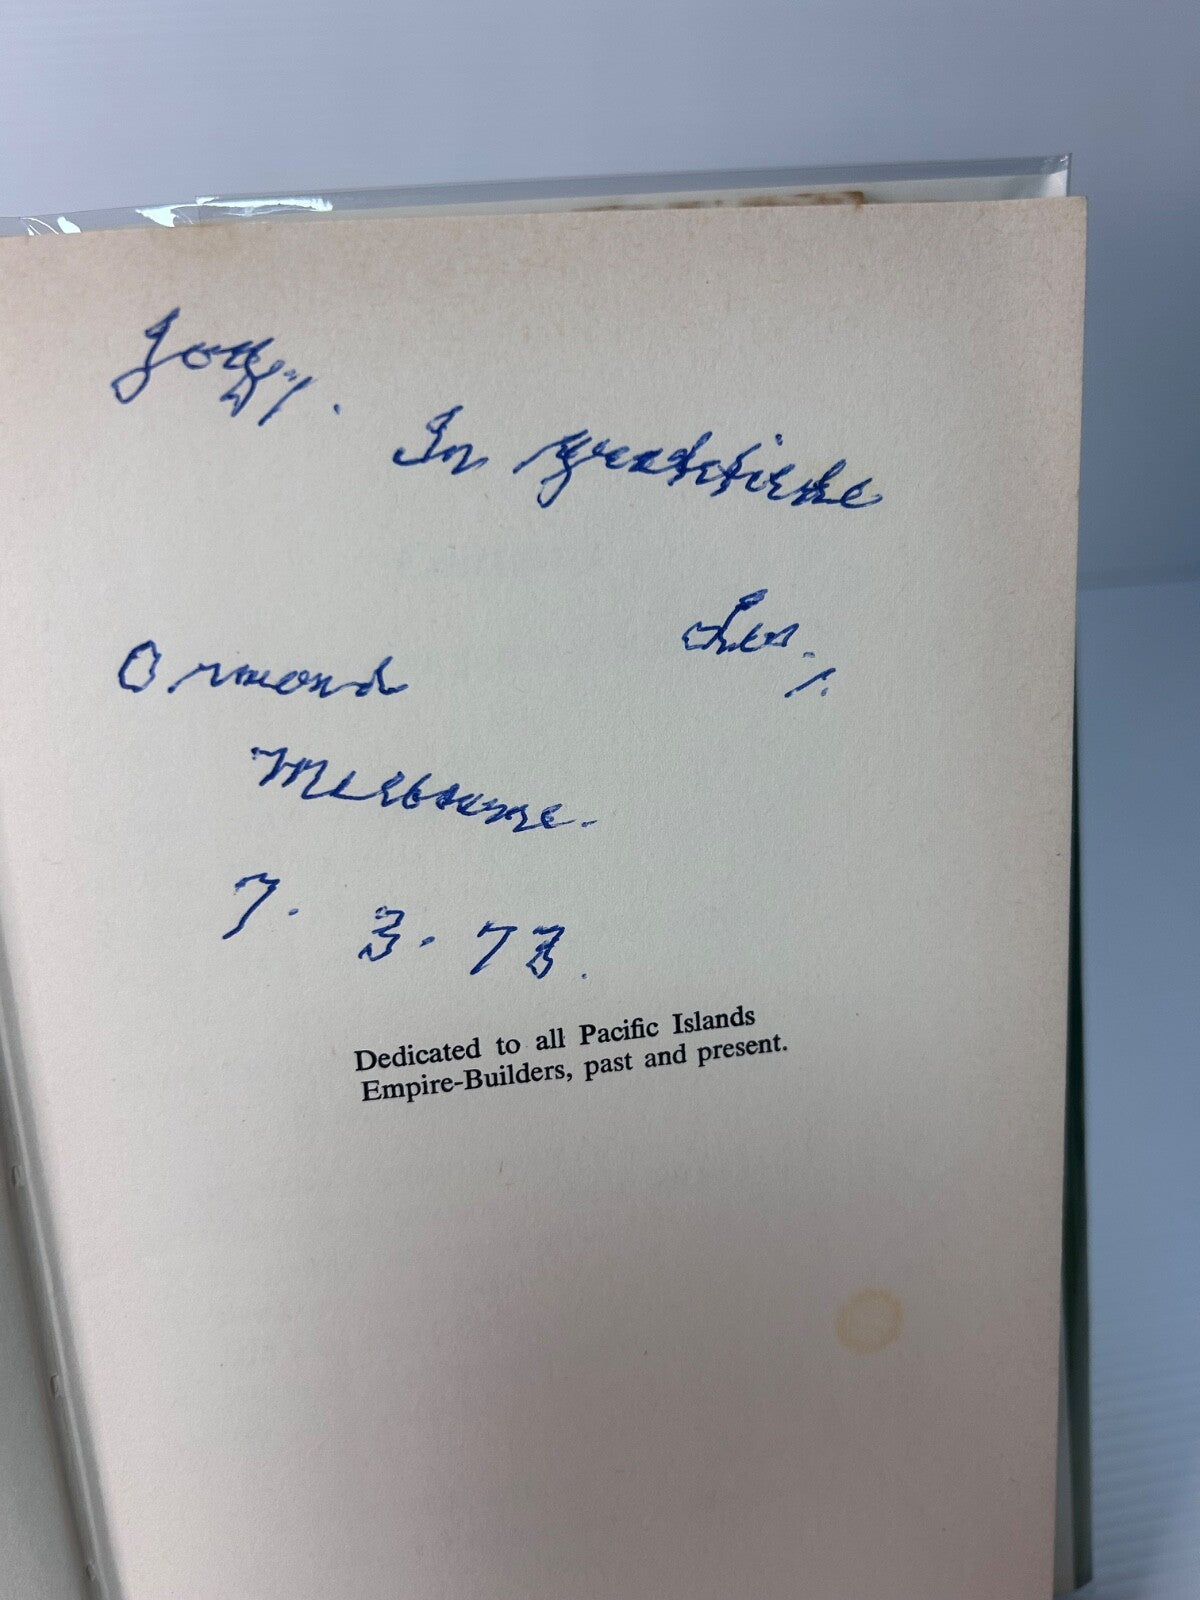 In gratitude
Les.
Ormond
Melbourne.
7. 3. 73.
Dedicated to all Pacific Islands
Empire-Builders, past and present.